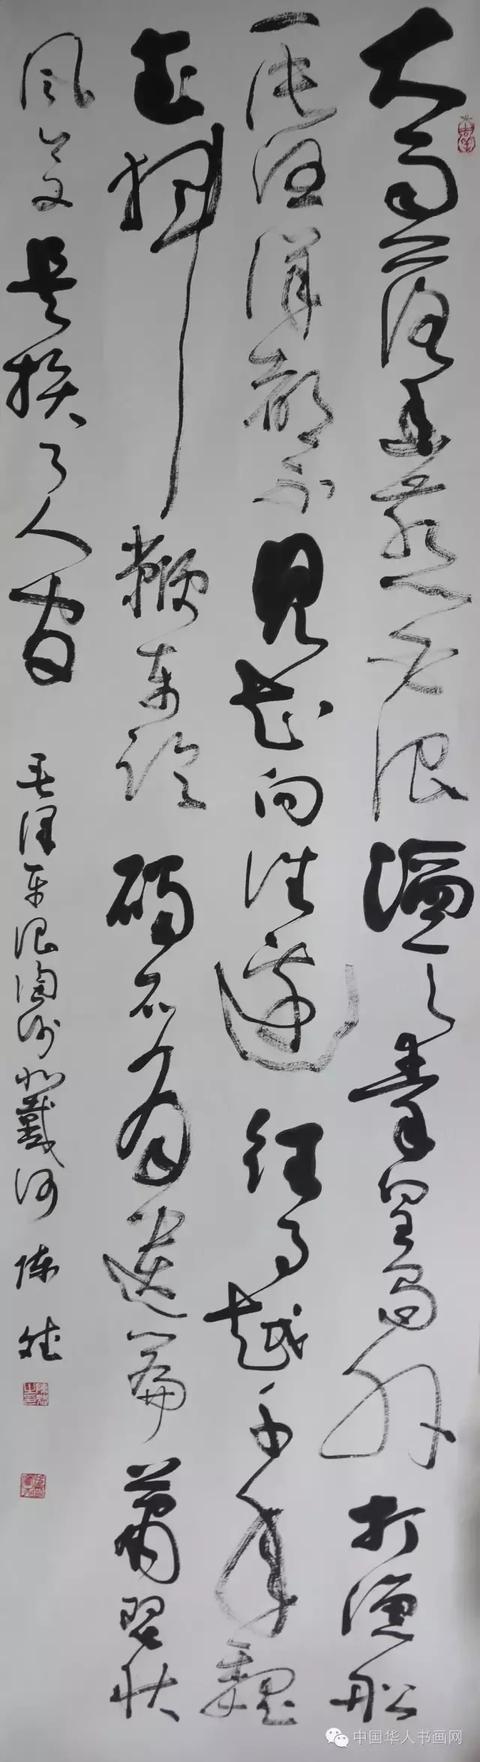 大雨落幽燕白浪滔天秦皇岛外打渔船
一片汪洋都不见知向谁边往事越千年魏
武挥鞭东临碣石有遗篇萧瑟秋
风今又是换了人间
毛泽东浪淘沙北戴河 陈
中国华人书画网